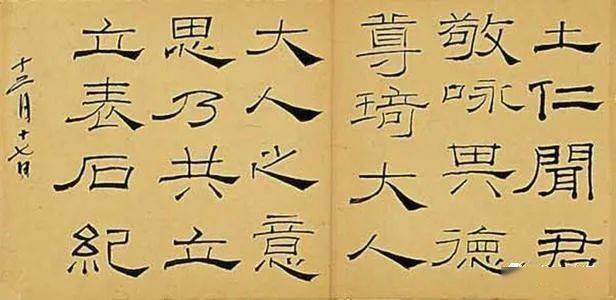 土仁聞君
敬咏其德
尊琦大人
大人之意
思乃共立
立表石紀
十二月十七日